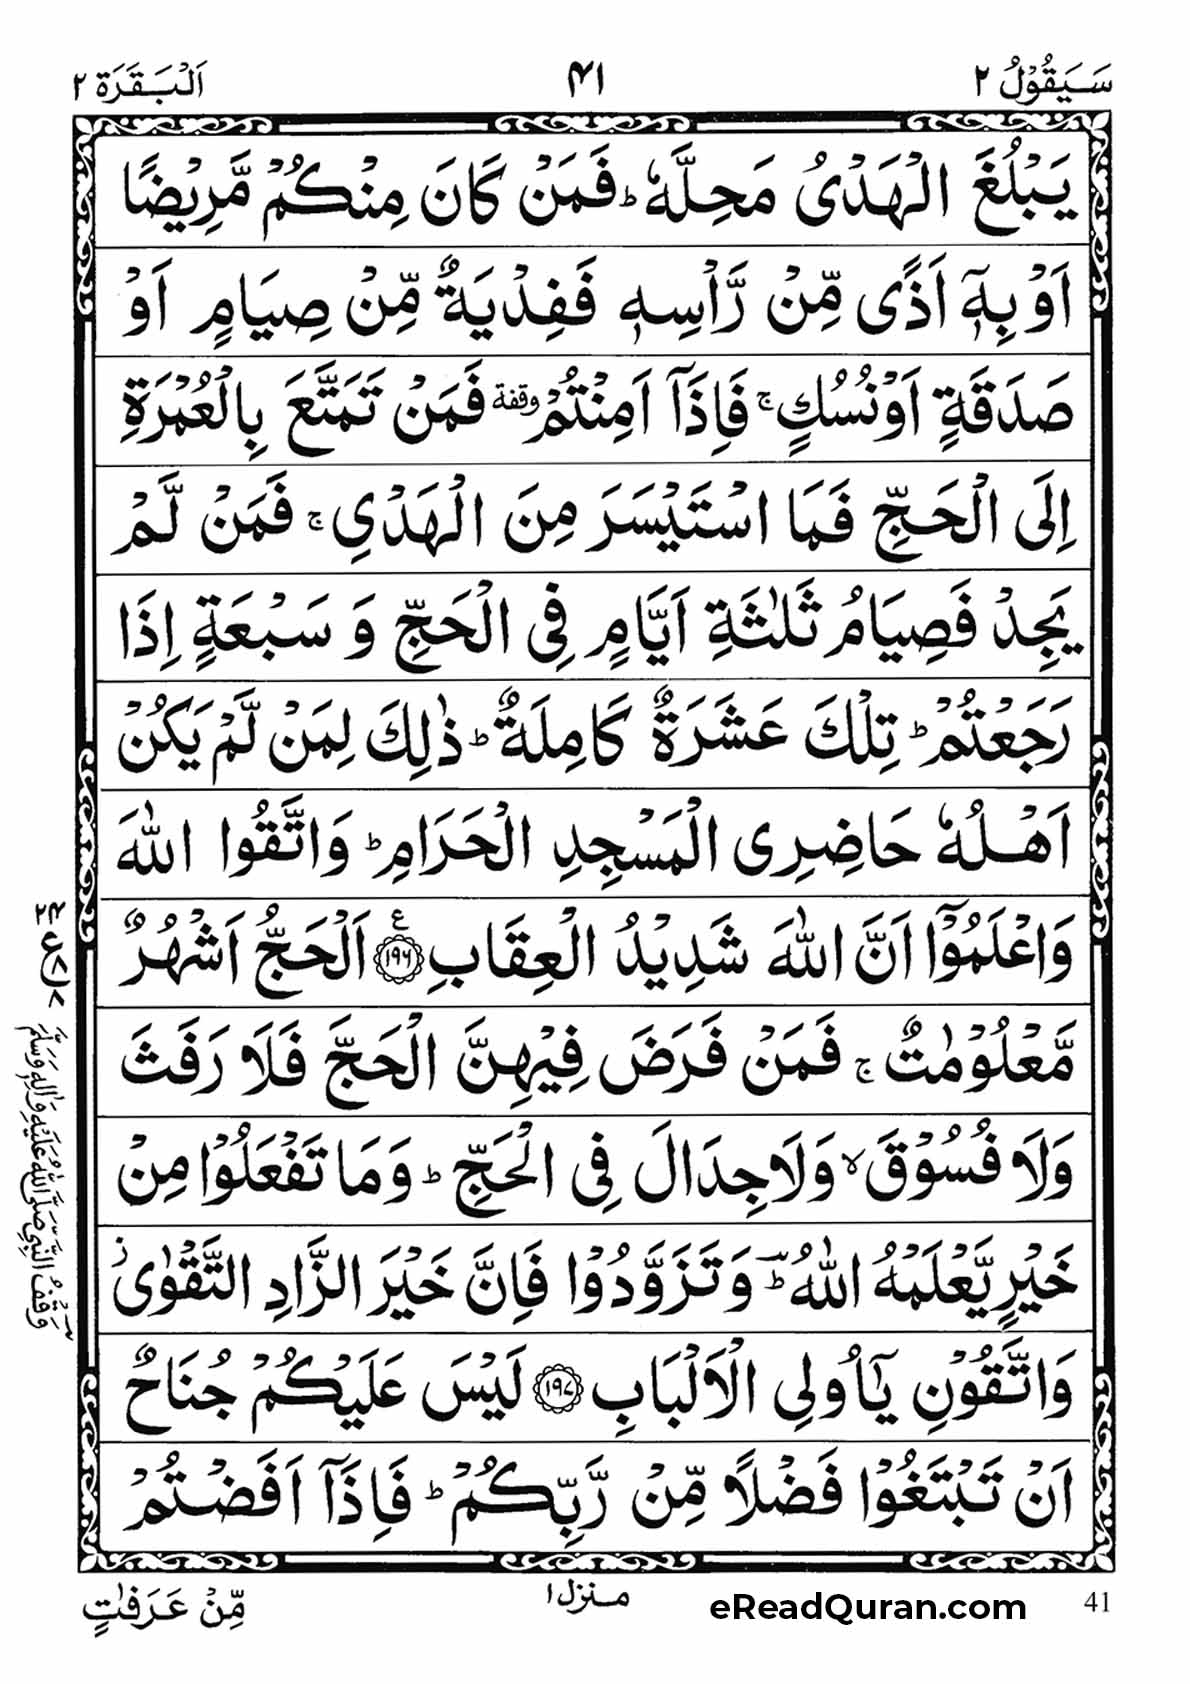 سَيَقُوْلُ ٢
٤١
اَلْبَقَرَة ٢
يَبْلُغَ الْهَدْىُ مَحِلَّهٗ ؕ فَمَنْ كَانَ مِنْكُمْ مَّرِيْضًا
اَوْ بِهٖۤ اَذًى مِّنْ رَّاْسِهٖ فَفِدْيَةٌ مِّنْ صِيَامٍ اَوْ
صَدَقَةٍ اَوْ نُسُكٍ ۚ فَاِذَاۤ اَمِنْتُمْ وقفة فَمَنْ تَمَتَّعَ بِالْعُمْرَةِ
اِلَى الْحَجِّ فَمَا اسْتَيْسَرَ مِنَ الْهَدْىِ ۚ فَمَنْ لَّمْ
يَجِدْ فَصِيَامُ ثَلٰثَةِ اَيَّامٍ فِى الْحَجِّ وَ سَبْعَةٍ اِذَا
رَجَعْتُمْ ؕ تِلْكَ عَشَرَةٌ كَامِلَةٌ ؕ ذٰلِكَ لِمَنْ لَّمْ يَكُنْ
اَهْلُهٗ حَاضِرِى الْمَسْجِدِ الْحَرَامِ ؕ وَاتَّقُوا اللّٰهَ
وَاعْلَمُوْۤا اَنَّ اللّٰهَ شَدِيْدُ الْعِقَابِ ع ١٩٦ اَلْحَجُّ اَشْهُرٌ
مَّعْلُوْمٰتٌ ۚ فَمَنْ فَرَضَ فِيْهِنَّ الْحَجَّ فَلَا رَفَثَ
وَلَا فُسُوْقَ ۙ وَلَا جِدَالَ فِى الْحَجِّ ؕ وَمَا تَفْعَلُوْا مِنْ
خَيْرٍ يَّعْلَمْهُ اللّٰهُ ؕ وَتَزَوَّدُوْا فَاِنَّ خَيْرَ الزَّادِ التَّقْوٰى ز
وَاتَّقُوْنِ يٰۤاُولِى الْاَلْبَابِ ١٩٧ لَيْسَ عَلَيْكُمْ جُنَاحٌ
اَنْ تَبْتَغُوْا فَضْلًا مِّنْ رَّبِّكُمْ ؕ فَاِذَاۤ اَفَضْتُمْ
وَقْفُ النَّبِىِّ صَلَّى اللّٰهُ عَلَيْهِ وَاٰلِهٖ وَسَلَّمَ
41
eReadQuran.com
منزل ١
مِّنْ عَرَفٰتٍ